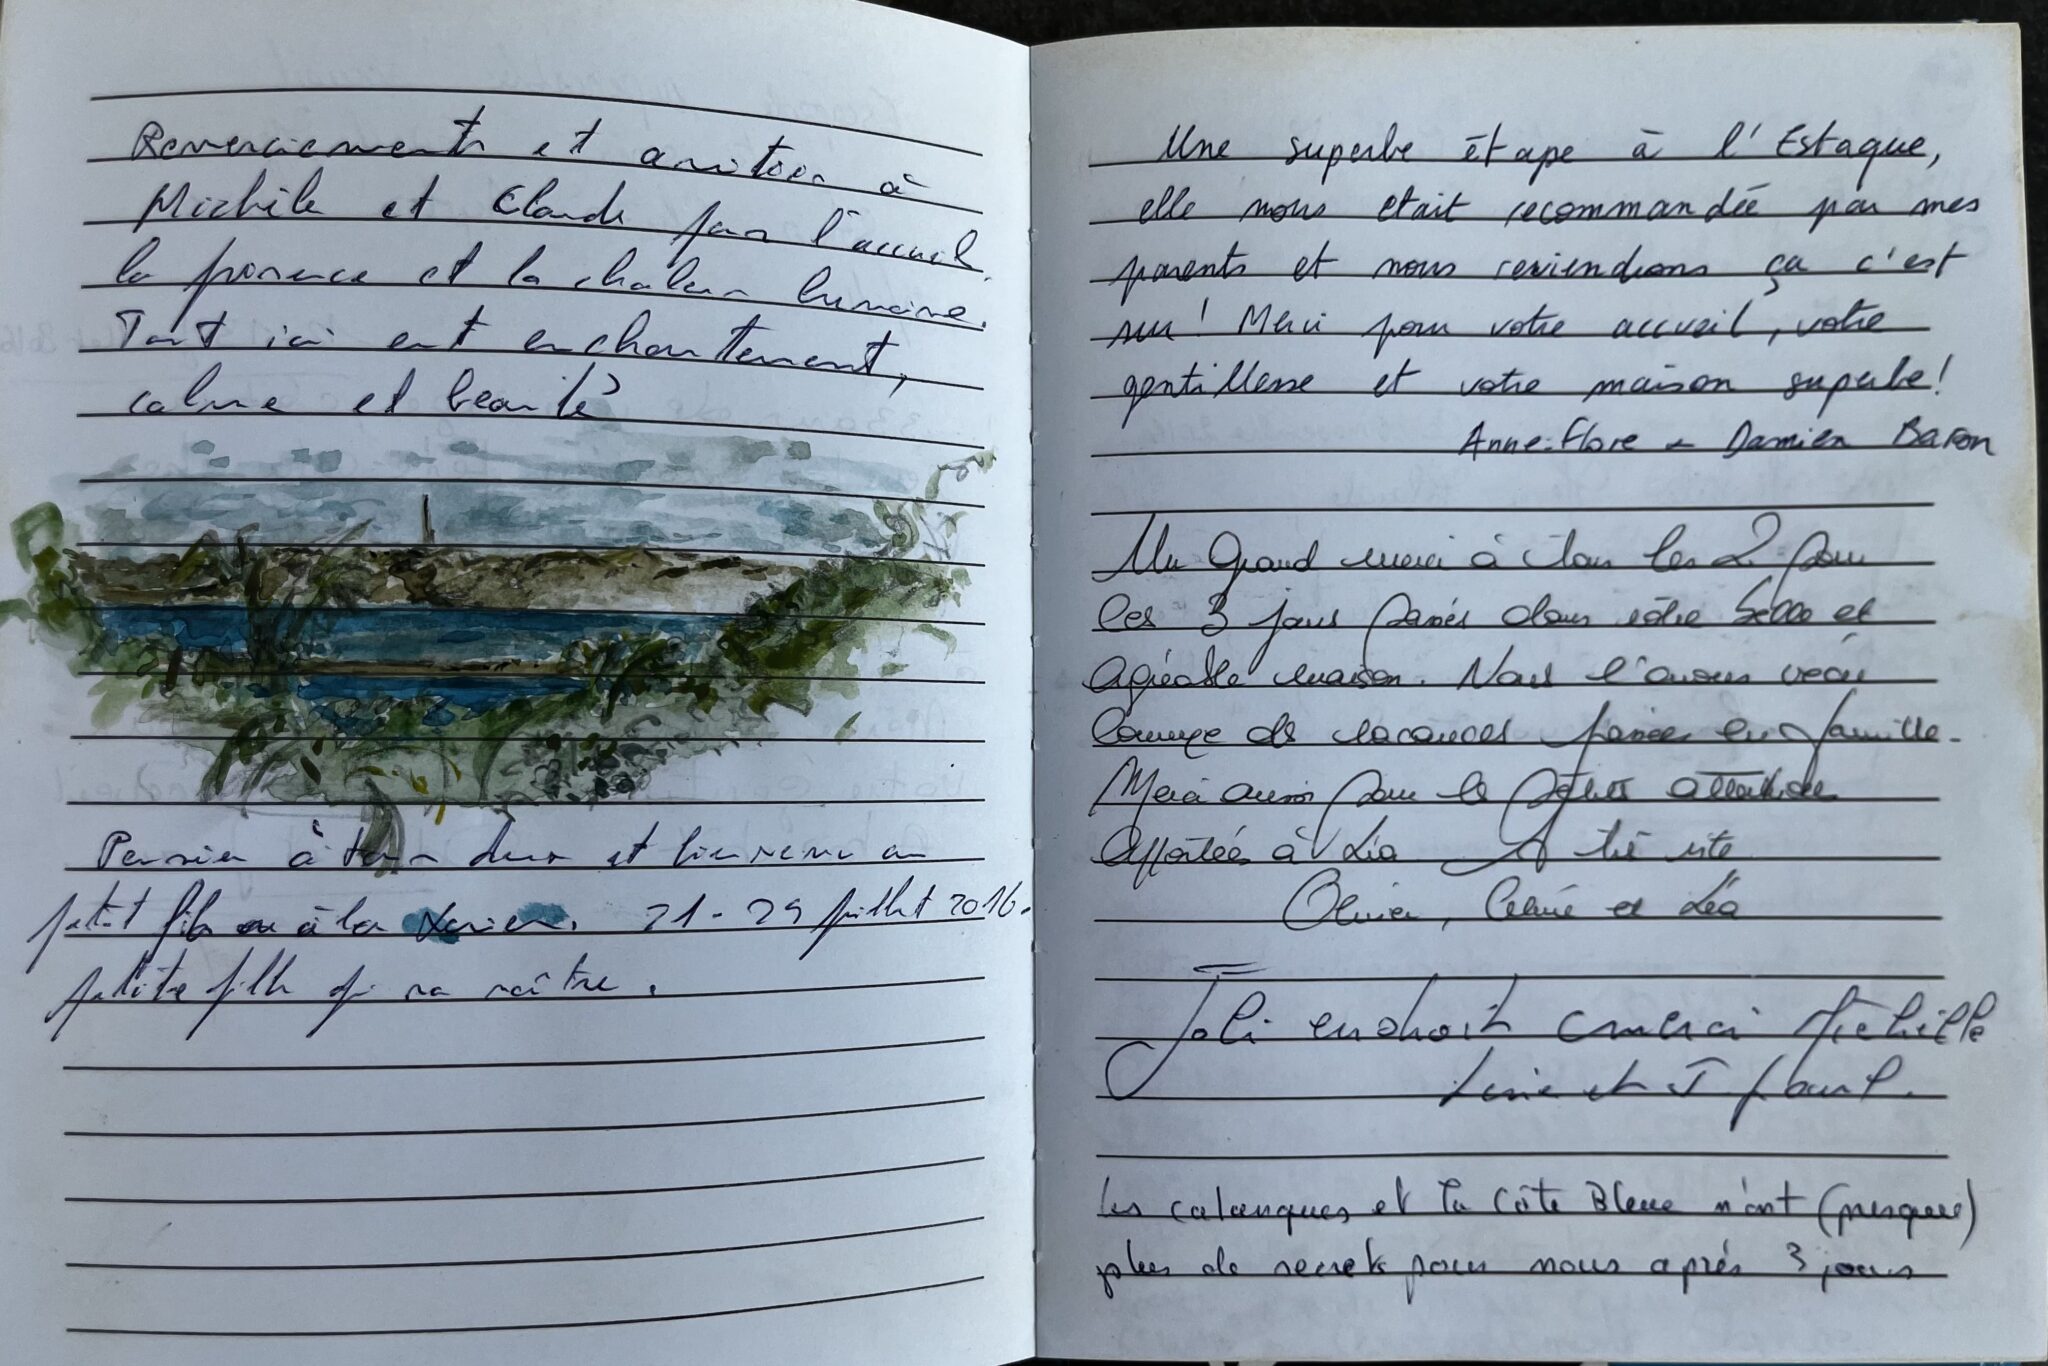 Remerciements et amitiés à
Michèle et Claude pour l'accueil,
la présence et la chaleur humaine.
Tout ici est enchantement,
calme et beauté
Pensées à tous deux et bienvenu au
petit fils ou à la 21-29 juillet 2016.
petite fille qui va naître.
Une superbe étape à l'Estaque,
elle nous etait recommandée par mes
parents et nous reviendrons ça c'est
sur! Merci pour votre accueil, votre
gentillesse et votre maison superbe!
Anne-Flore - Damien Baron
Un Grand merci à tous les 2 pour
les 3 jours passés dans votre belle et
agréable maison. Nous l'avons vécu
comme de vacances passées en famille.
Merci aussi pour les petites attentions
apportées à Léa A très vite
Olivier, et Léa
Joli endroit merci Michèle
et J Paul.
Les calanques et la Côte Bleue n'ont (presque)
plus de secrets pour nous après 3 jours